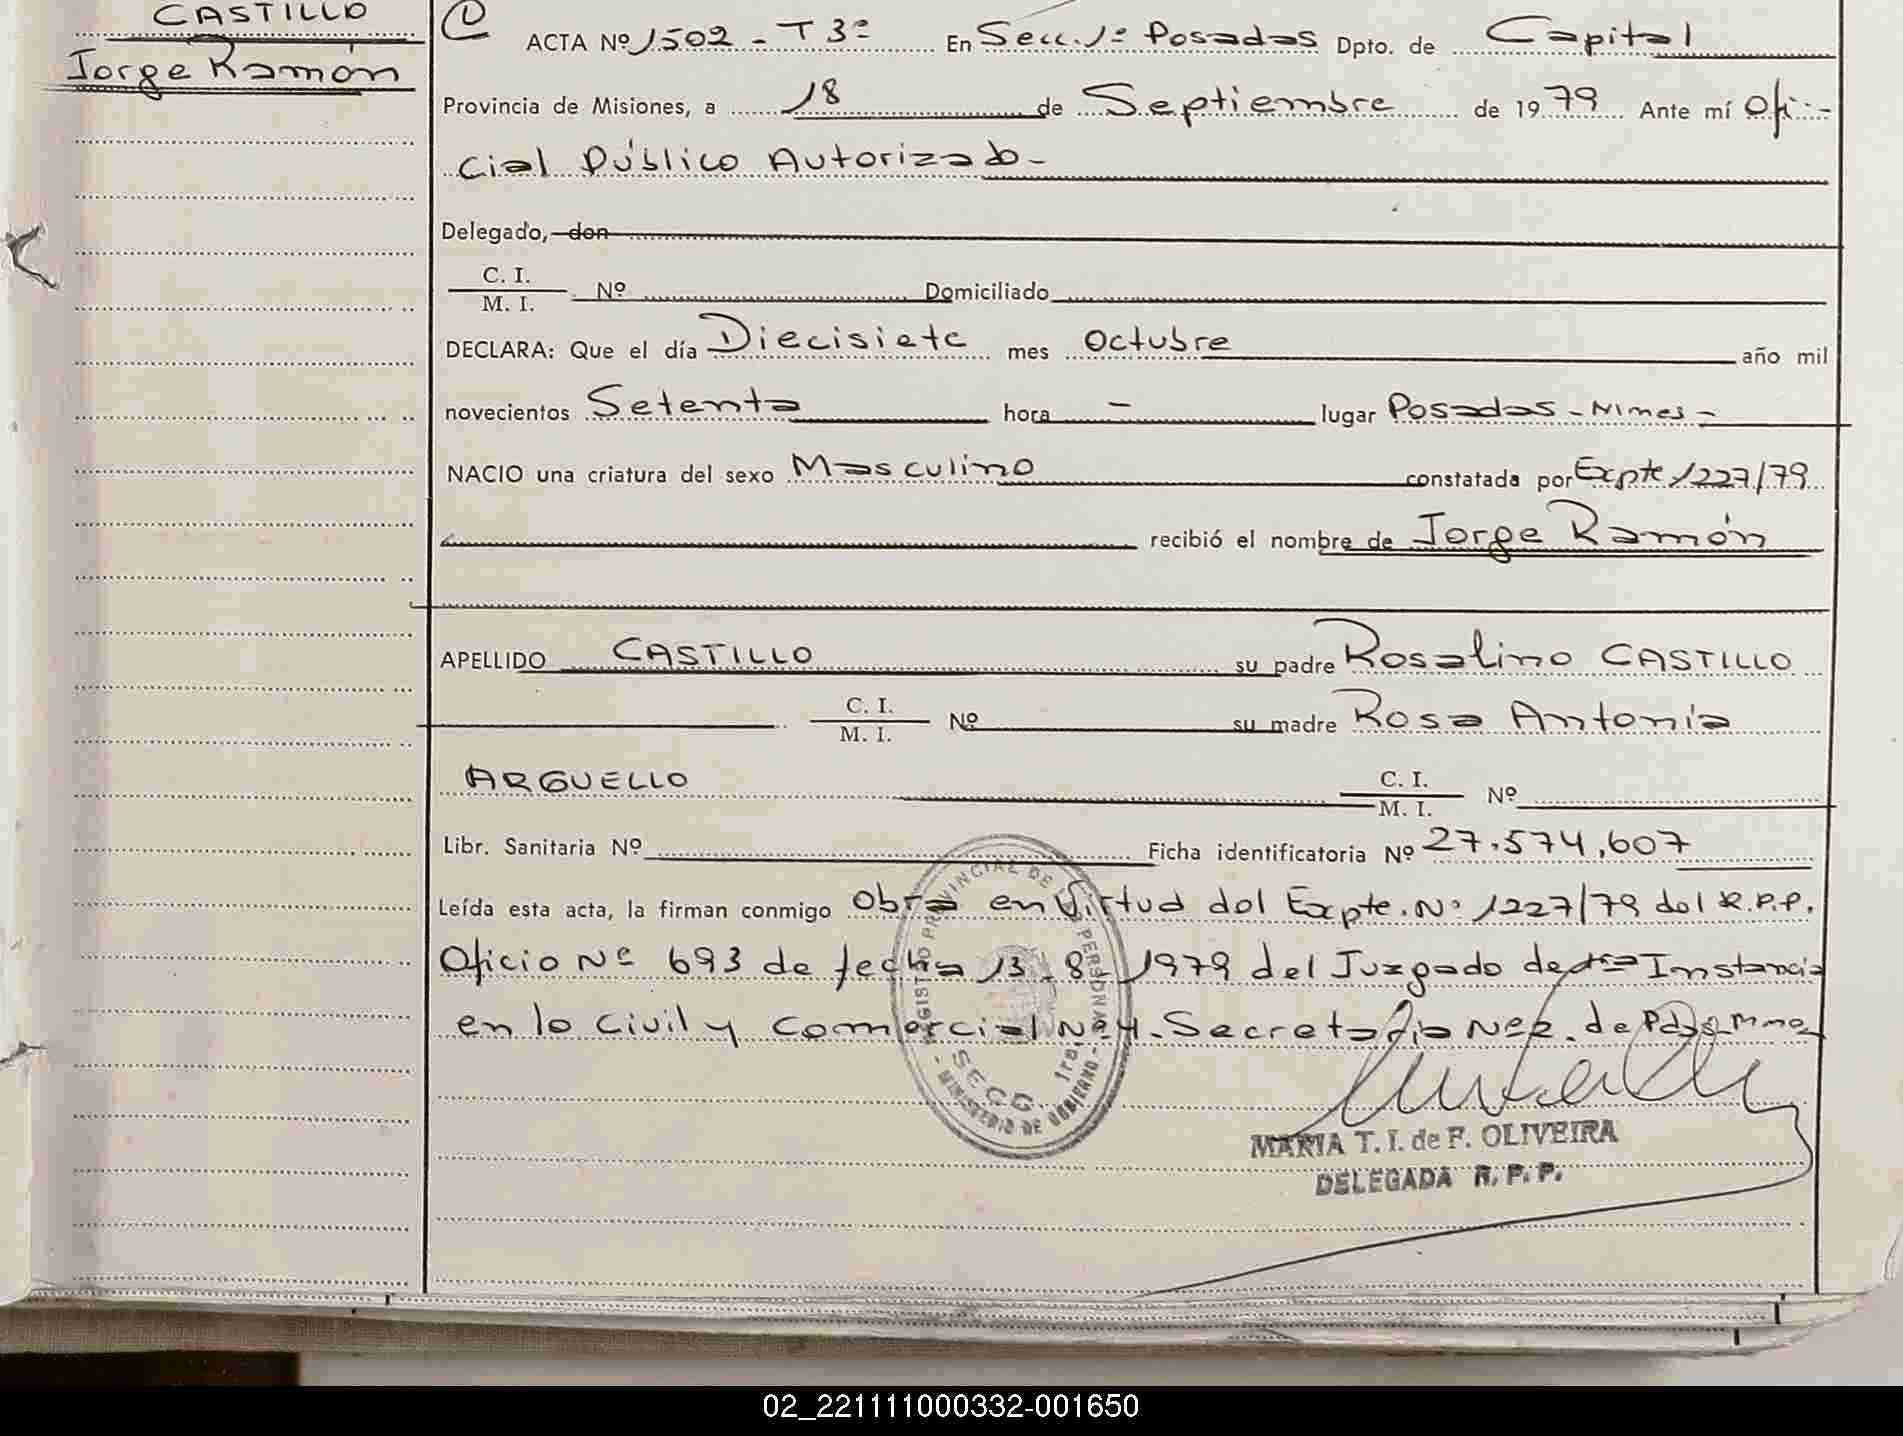 CASTILLO
Jorge Ramón
ACTA Nº 1502 - T 3º En Secc. 1º Posadas Dpto. de Capital
Provincia de Misiones, a 18 de Septiembre de 1979 Ante mí Ofi-
cial Público Autorizado-
Delegado, don
C. I.
M. I. Nº Domiciliado
DECLARA: Que el día Diecisiete mes Octubre año mil
novecientos Setenta hora - lugar Posadas - Mnes -
NACIO una criatura del sexo Masculino constatada por Expte 1227/79
recibió el nombre de Jorge Ramón
APELLIDO CASTILLO su padre Rosalino CASTILLO
C. I.
M. I. Nº su madre Rosa Antonia
ARGUELLO C. I.
M. I. Nº
Libr. Sanitaria Nº Ficha identificatoria Nº 27.574,607
Leída esta acta, la firman conmigo Obra en Virtud del Expte. Nº 1227/79 del R.P.P.
Oficio Nº 693 de fecha 13-8-1979 del Juzgado de 1ra Instancia
en lo Civil y Comercial Nº 4. Secretaria Nº 2. de Pdas Mnes
REGISTRO PROVINCIAL DE LAS PERSONAS
SECC. 1ra.
- MINISTERIO DE GOBIERNO -
MARIA T. I. de F. OLIVEIRA
DELEGADA R. P. P.
02_221111000332-001650